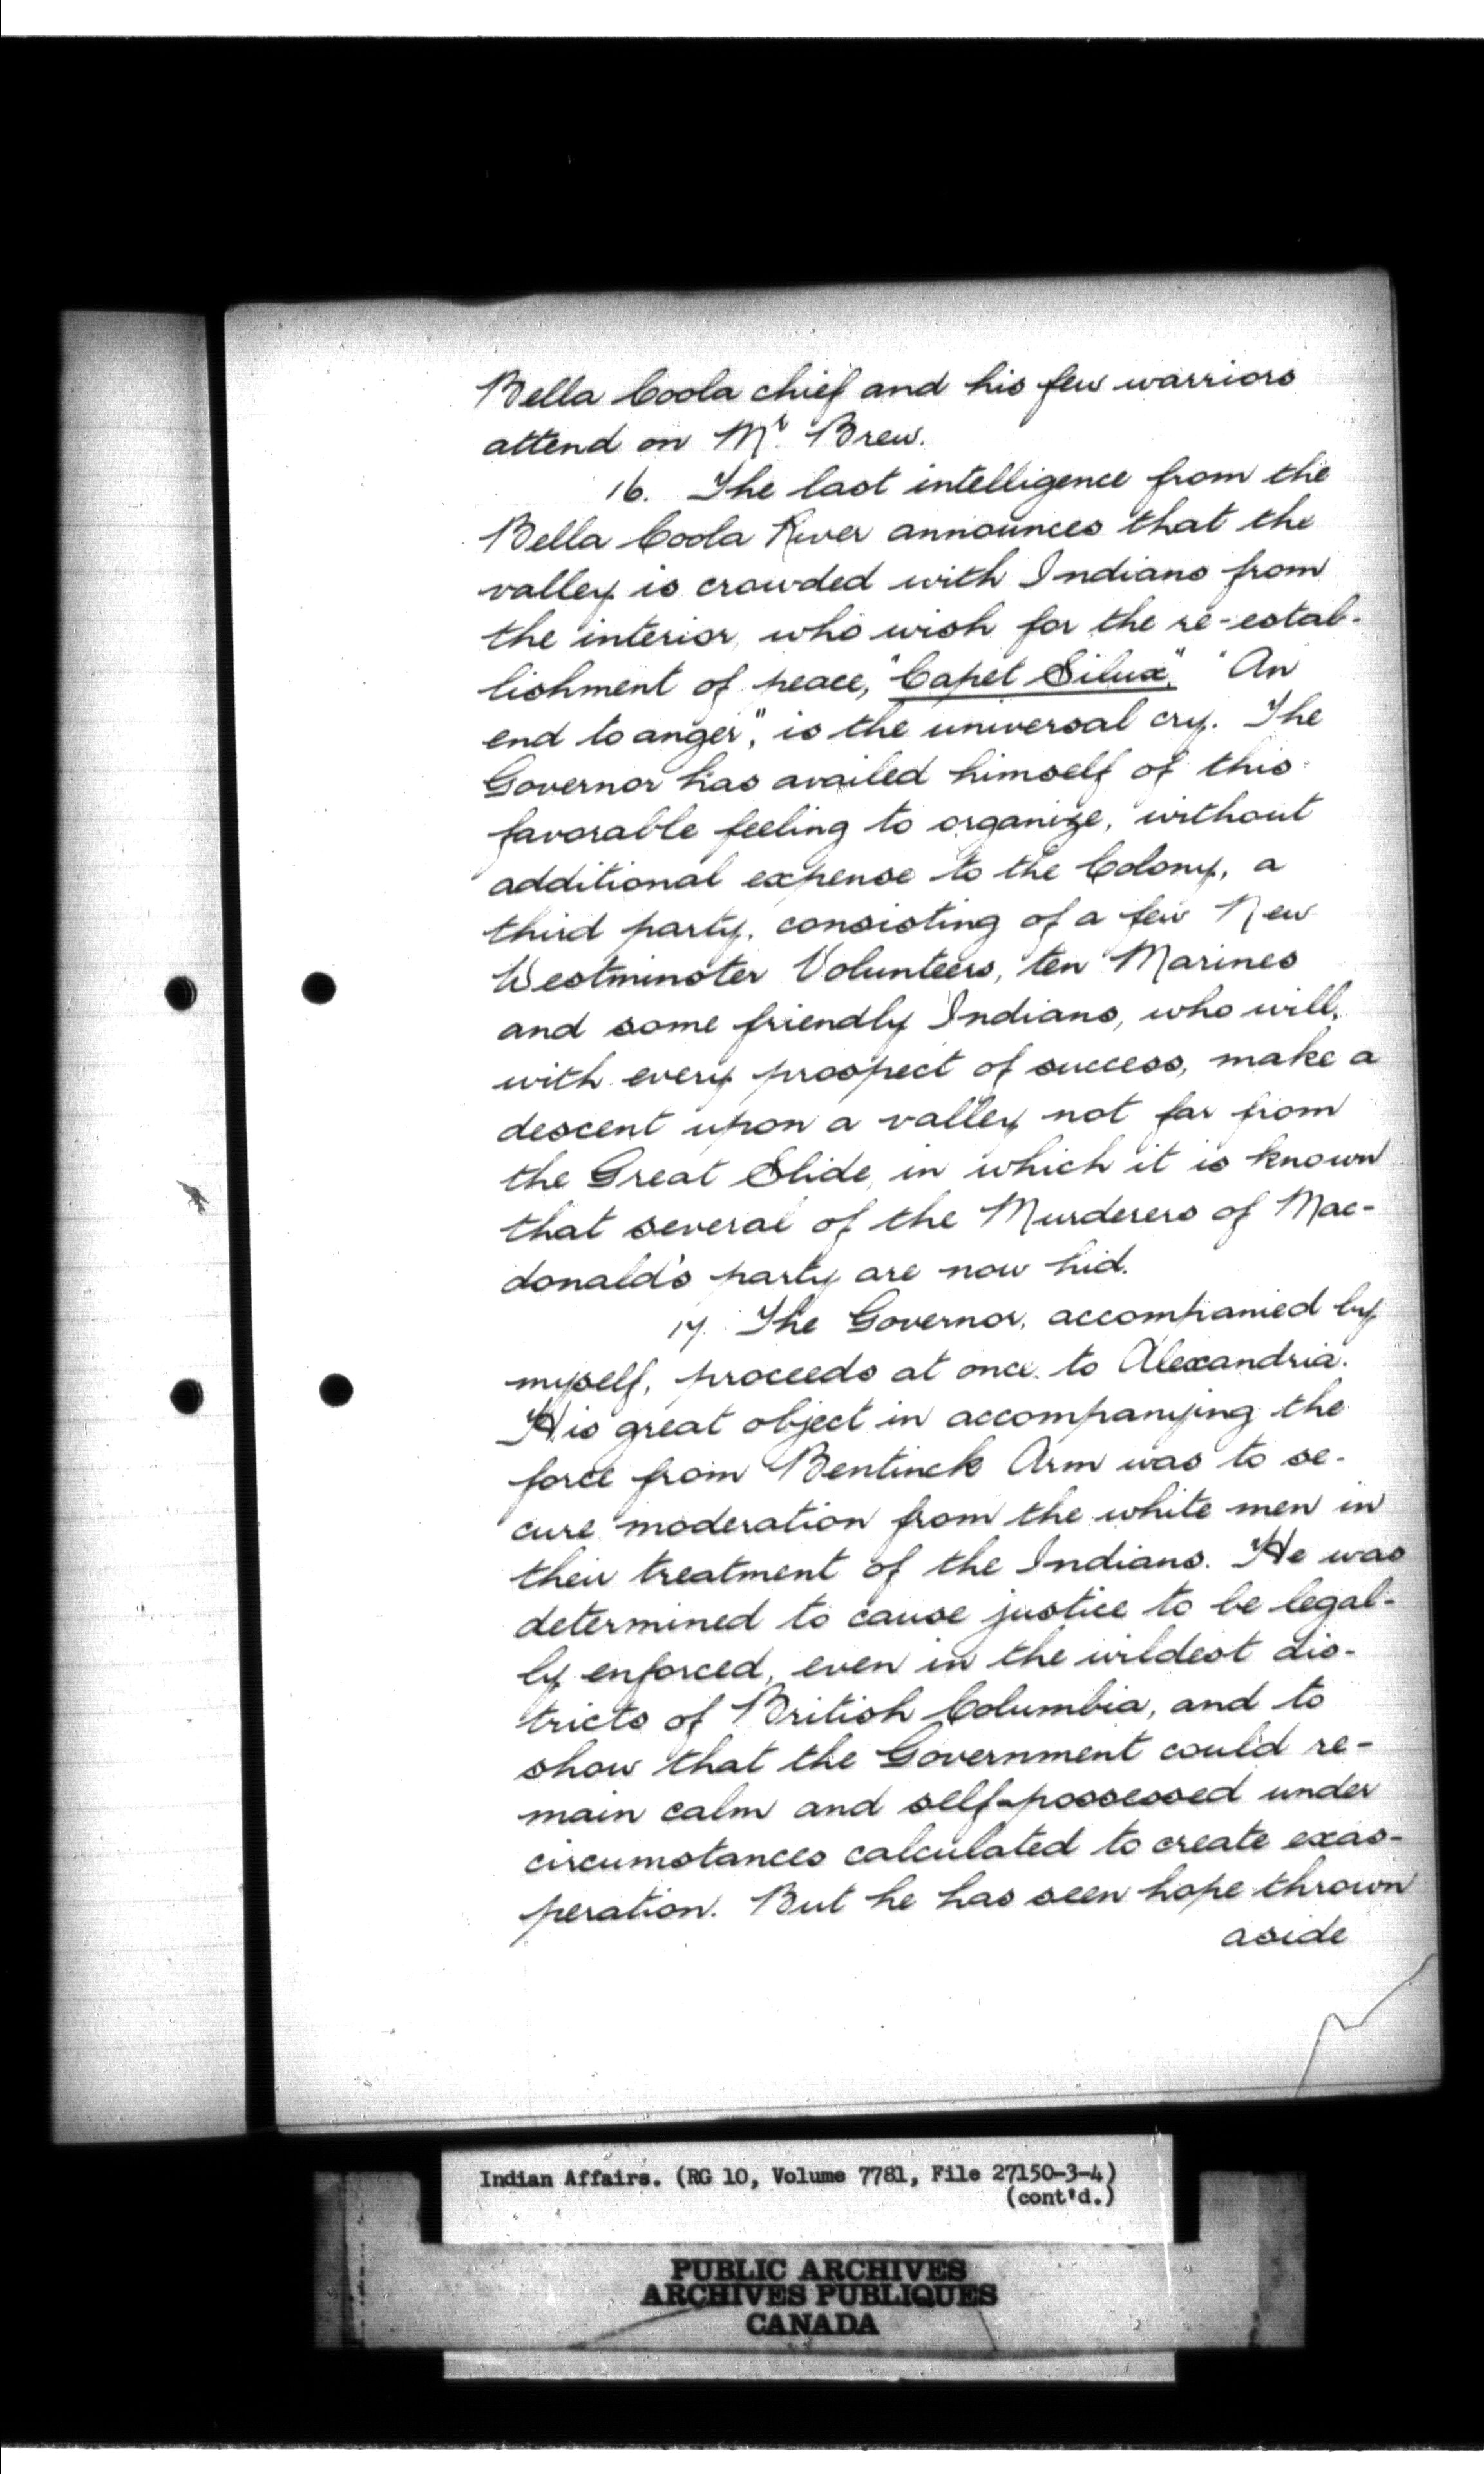 Bella Coola chief and his few warriors
attend on Mr. Brew.
16. The last intelligence from the
Bella Coola River announces that the
valley is crowded with Indians from
the interior, who wish for the re-estab-
lishment of peace, "Capet Silux", "An
end to anger", is the universal cry. The
Governor has availed himself of this
favorable feeling to organize, without
additional expense to the Colony, a
third party, consisting of a few New
Westminster Volunteers, ten Marines
and some friendly Indians, who will,
with every prospect of success, make a
descent upon a valley not far from
the Great Slide, in which it is known
that several of the Murderers of Mac-
donald's party are now hid.
17. The Governor, accompanied by
myself, proceeds at once to Alexandria.
His great object in accompanying the
force from Bentinck Arm was to se-
cure moderation from the white men in
their treatment of the Indians. He was
determined to cause justice to be legal-
ly enforced, even in the wildest dis-
tricts of British Columbia, and to
show that the Government could re-
main calm and self-possessed under
circumstances calculated to create exas-
peration. But he has seen hope thrown
aside
Indian Affairs. (RG 10, Volume 7781, File 27150-3-4)
(cont'd.)
PUBLIC ARCHIVES
ARCHIVES PUBLIQUES
CANADA